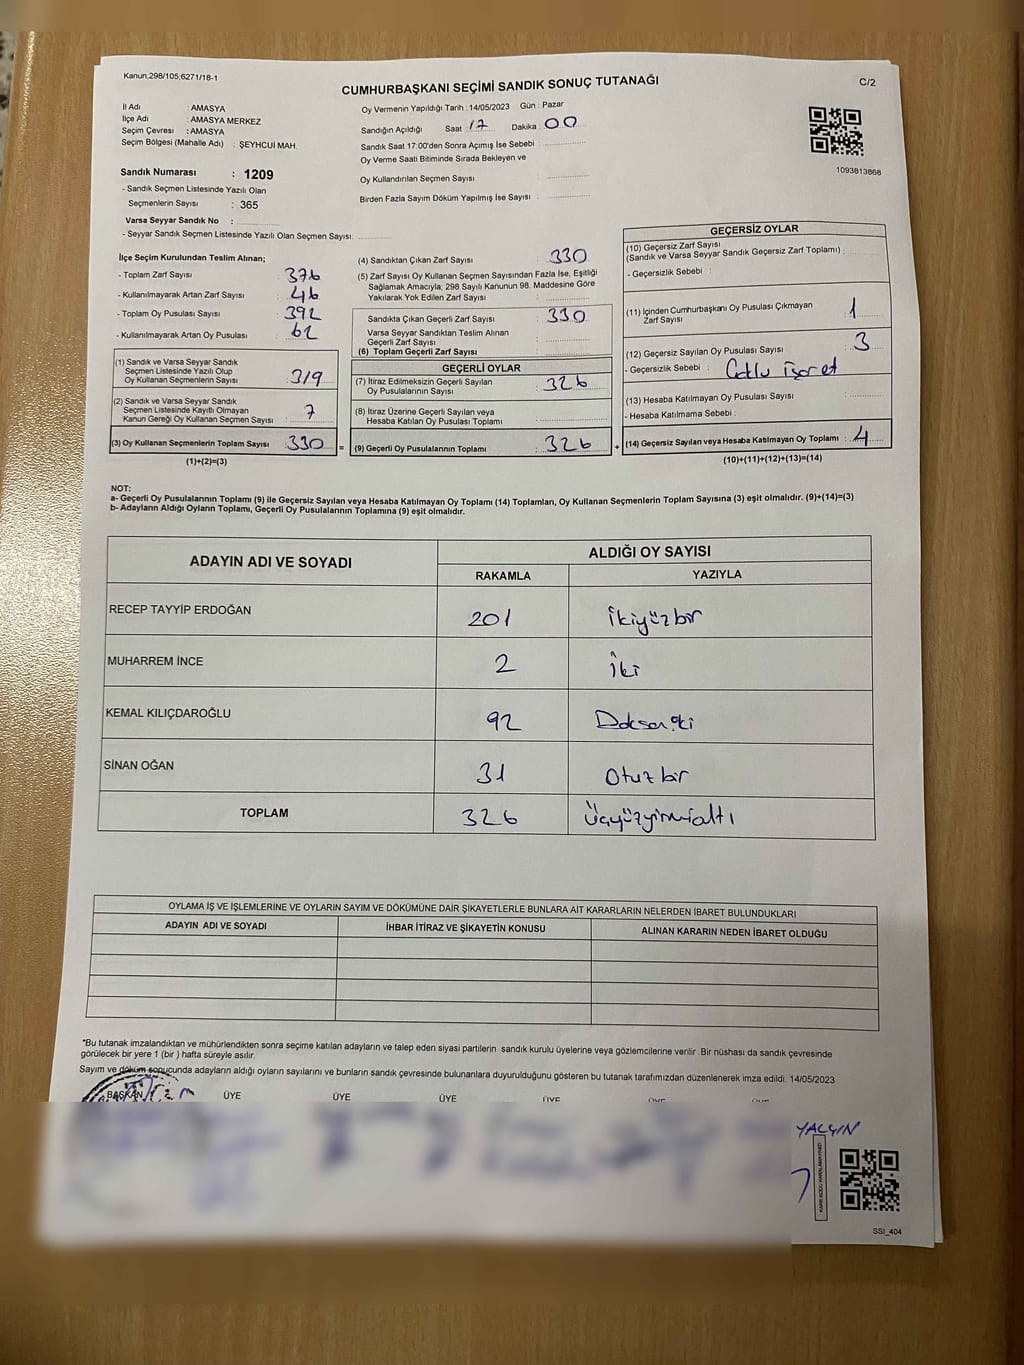 Kanun,298/105;6271/18-1
CUMHURBAŞKANI SEÇİMİ SANDIK SONUÇ TUTANAĞI
C/2
İl Adı : AMASYA
İlçe Adı : AMASYA MERKEZ
Seçim Çevresi : AMASYA
Seçim Bölgesi (Mahalle Adı) : ŞEYHCUİ MAH.
Sandık Numarası : 1209
- Sandık Seçmen Listesinde Yazılı Olan
Seçmenlerin Sayısı : 365
Varsa Seyyar Sandık No :
- Seyyar Sandık Seçmen Listesinde Yazılı Olan Seçmen Sayısı:
Oy Vermenin Yapıldığı Tarih :14/05/2023 Gün : Pazar
Sandığın Açıldığı Saat : 17 Dakika : 00
Sandık Saat 17:00'den Sonra Açımış İse Sebebi :
Oy Verme Saati Bitiminde Sırada Bekleyen ve
Oy Kullandırılan Seçmen Sayısı :
Birden Fazla Sayım Döküm Yapılmış İse Sayısı :
1093813868
İlçe Seçim Kurulundan Teslim Alınan;
- Toplam Zarf Sayısı : 376
- Kullanılmayarak Artan Zarf Sayısı : 46
- Toplam Oy Pusulası Sayısı : 392
- Kullanılmayarak Artan Oy Pusulası : 62
(1) Sandık ve Varsa Seyyar Sandık
Seçmen Listesinde Yazılı Olup
Oy Kullanan Seçmenlerin Sayısı : 319
(2) Sandık ve Varsa Seyyar Sandık
Seçmen Listesinde Kayıtlı Olmayan
Kanun Gereği Oy Kullanan Seçmen Sayısı : 7
(3) Oy Kullanan Seçmenlerin Toplam Sayısı : 330 =
(1)+(2)=(3)
(4) Sandıktan Çıkan Zarf Sayısı : 330
(5) Zarf Sayısı Oy Kullanan Seçmen Sayısından Fazla İse, Eşitliği
Sağlamak Amacıyla; 298 Sayılı Kanunun 98. Maddesine Göre
Yakılarak Yok Edilen Zarf Sayısı :
Sandıkta Çıkan Geçerli Zarf Sayısı : 330
Varsa Seyyar Sandıktan Teslim Alınan
Geçerli Zarf Sayısı :
(6) Toplam Geçerli Zarf Sayısı :
GEÇERLİ OYLAR
(7) İtiraz Edilmeksizin Geçerli Sayılan
Oy Pusulalarının Sayısı : 326
(8) İtiraz Üzerine Geçerli Sayılan veya
Hesaba Katılan Oy Pusulası Toplamı :
(9) Geçerli Oy Pusulalarının Toplamı : 326 +
GEÇERSİZ OYLAR
(10) Geçersiz Zarf Sayısı
(Sandık ve Varsa Seyyar Sandık Geçersiz Zarf Toplamı) :
- Geçersizlik Sebebi :
(11) İçinden Cumhurbaşkanı Oy Pusulası Çıkmayan
Zarf Sayısı : 1
(12) Geçersiz Sayılan Oy Pusulası Sayısı : 3
- Geçersizlik Sebebi : Çoklu işaret
(13) Hesaba Katılmayan Oy Pusulası Sayısı :
- Hesaba Katılmama Sebebi :
(14) Geçersiz Sayılan veya Hesaba Katılmayan Oy Toplamı : 4
(10)+(11)+(12)+(13)=(14)
NOT:
a- Geçerli Oy Pusulalarının Toplamı (9) ile Geçersiz Sayılan veya Hesaba Katılmayan Oy Toplamı (14) Toplamları, Oy Kullanan Seçmenlerin Toplam Sayısına (3) eşit olmalıdır. (9)+(14)=(3)
b- Adayların Aldığı Oyların Toplamı, Geçerli Oy Pusulalarının Toplamına (9) eşit olmalıdır.
ADAYIN ADI VE SOYADI
ALDIĞI OY SAYISI
RAKAMLA YAZIYLA
RECEP TAYYİP ERDOĞAN 201 İkiyüzbir
MUHARREM İNCE 2 İki
KEMAL KILIÇDAROĞLU 92 Doksaniki
SİNAN OĞAN 31 Otuzbir
TOPLAM 326 Üçyüzyirmialtı
OYLAMA İŞ VE İŞLEMLERİNE VE OYLARIN SAYIM VE DÖKÜMÜNE DAİR ŞİKAYETLERLE BUNLARA AİT KARARLARIN NELERDEN İBARET BULUNDUKLARI
ADAYIN ADI VE SOYADI İHBAR İTİRAZ VE ŞİKAYETİN KONUSU ALINAN KARARIN NEDEN İBARET OLDUĞU
*Bu tutanak imzalandıktan ve mühürlendikten sonra seçime katılan adayların ve talep eden siyasi partilerin sandık kurulu üyelerine veya gözlemcilerine verilir. Bir nüshası da sandık çevresinde
görülecek bir yere 1 (bir ) hafta süreyle asılır.
Sayım ve döküm sonucunda adayların aldığı oyların sayılarını ve bunların sandık çevresinde bulunanlara duyurulduğunu gösteren bu tutanak tarafımızdan düzenlenerek imza edildi. 14/05/2023
BAŞKAN ÜYE ÜYE ÜYE ÜYE
YALÇIN
SSI_404